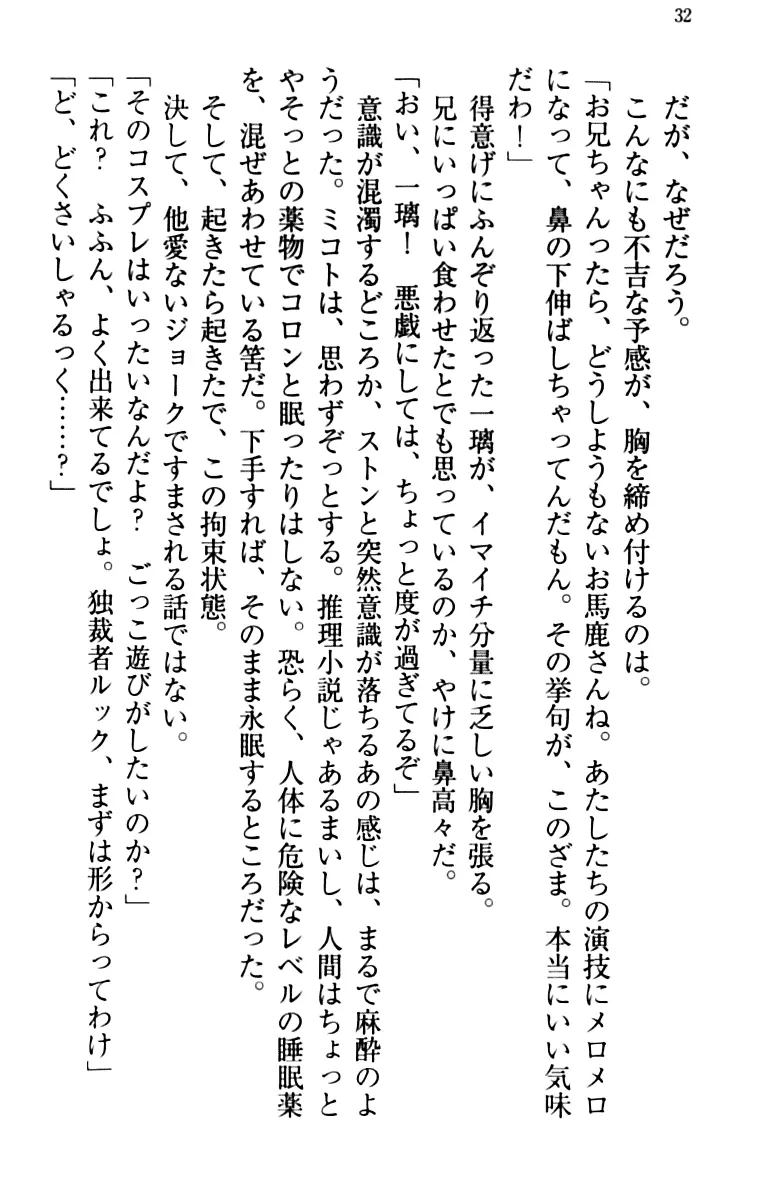 32
だが、なぜだろう。
こんなにも不吉な予感が、胸を締め付けるのは。
「お兄ちゃんったら、どうしようもないお馬鹿さんね。あたしたちの演技にメロメロ
になって、鼻の下伸ばしちゃってんだもん。その挙句が、このざま。本当にいい気味
だわ！」
得意げにふんぞり返った一璃が、イマイチ分量に乏しい胸を張る。
兄にいっぱい食わせたとでも思っているのか、やけに鼻高々だ。
「おい、一璃！　悪戯にしては、ちょっと度が過ぎてるぞ」
意識が混濁するどころか、ストンと突然意識が落ちるあの感じは、まるで麻酔のよ
うだった。ミコトは、思わずぞっとする。推理小説じゃあるまいし、人間はちょっと
やそっとの薬物でコロンと眠ったりはしない。恐らく、人体に危険なレベルの睡眠薬
を、混ぜあわせている筈だ。下手すれば、そのまま永眠するところだった。
そして、起きたら起きたで、この拘束状態。
決して、他愛ないジョークですまされる話ではない。
「そのコスプレはいったいなんだよ？　ごっこ遊びがしたいのか？」
「これ？　ふふん、よく出来てるでしょ。独裁者ルック、まずは形からってわけ」
「ど、どくさいしゃるっく……？」